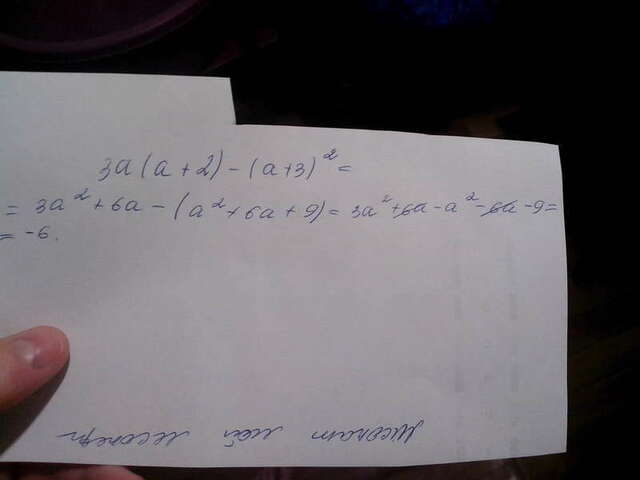 3a(a+2)-(a+3)²=
= 3a²+6a-(a²+6a+9)= 3a²+6a-a²-6a-9=
= -6.